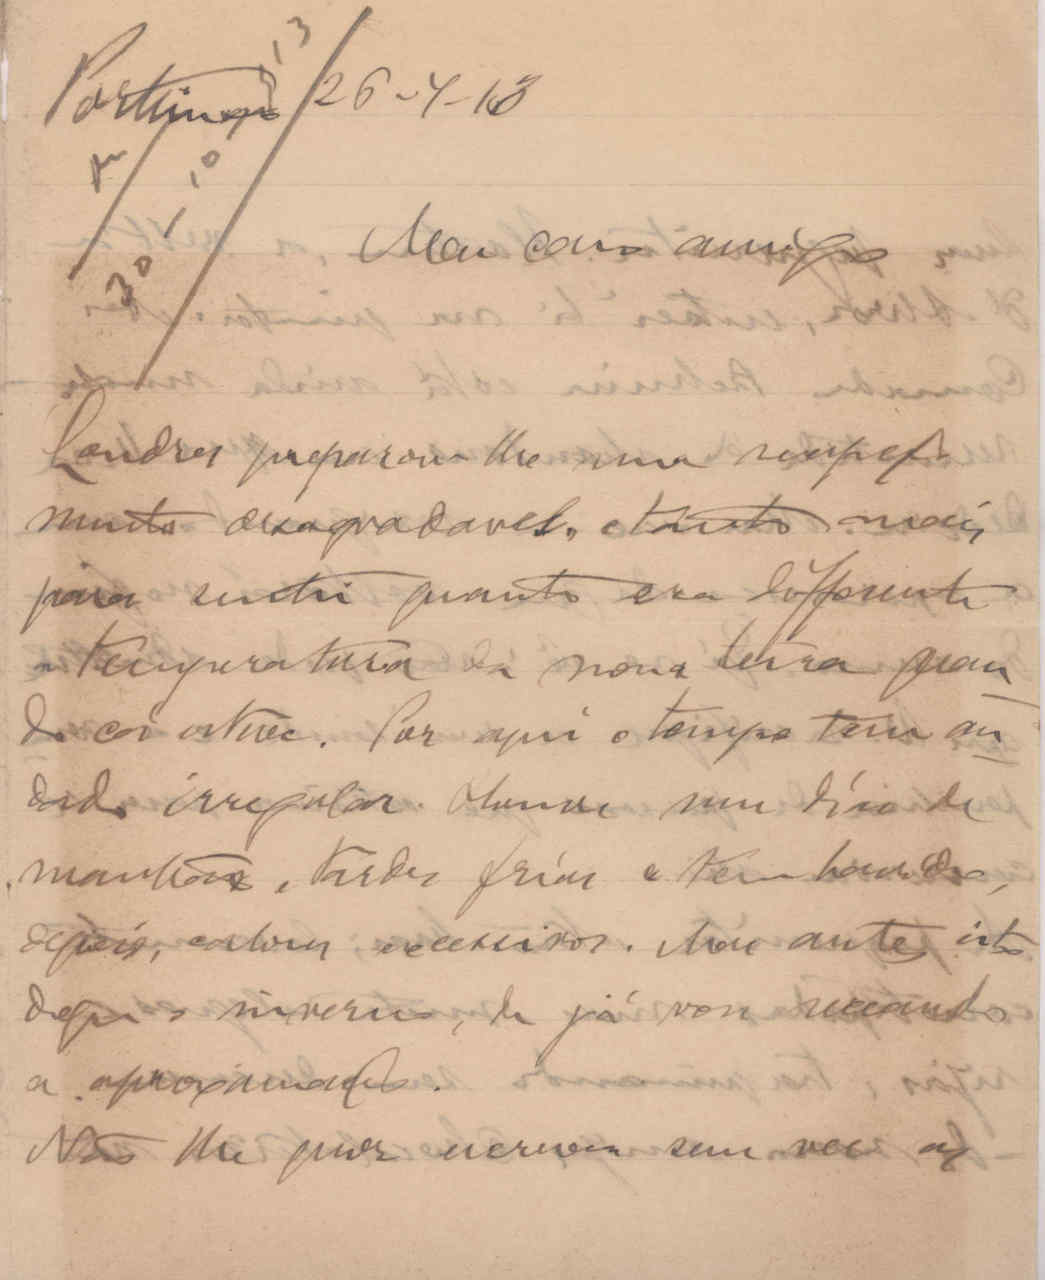 Portimão 26-4-13
13
10
30
Meu caro amigo
Londres preparou-lhe uma recepção
muito desagradavel, e tanto mais
para sentir quanto era differente
a temperatura da nossa terra quan
do cá esteve. Por aqui o tempo tem an
dado irregular. Houve um dia de
manhãs e tardes frias e tem havido,
depois, calores excessivos. Mas antes isto
do que o inverno, de que já vou receando
a aproximação.
Não lhe quer escrever sem